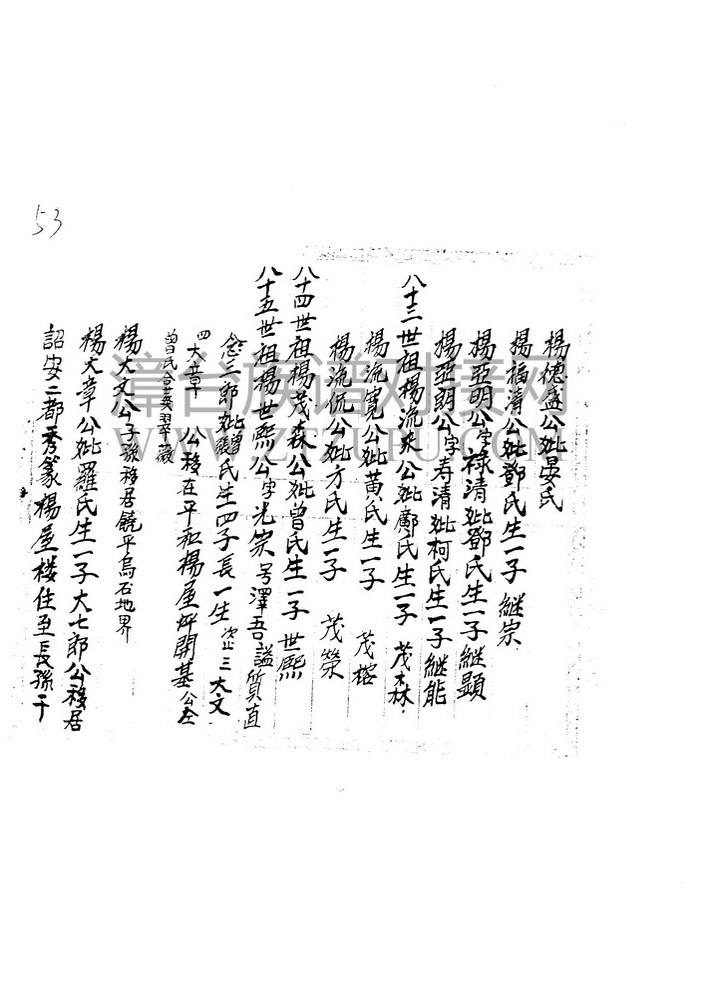 53
楊德盛公妣晏氏
楊福清公妣鄧氏生一子 繼宗
楊亞明公字祿清妣鄧氏生一子繼顯
楊亞朗公字寿清妣柯氏生一子繼能
八十三世祖楊流來公妣鄺氏生一子 茂森
楊流寬公妣黃氏生一子 茂榕
楊流侃公妣方氏生一子 茂榮
八十四世祖楊茂森公妣曾氏生一子 世熙
八十五世祖楊世熙公字光宗号澤吾謚質直
念三郎妣氏生四子長一生 三大文
四大章 公移在平和楊屋坪開基公在
曾氏合葬翠薇
楊大文公子孫移居饒平烏石地界
楊大章公妣羅氏生一子大七郎公移居
詔安二都秀篆楊屋楼住至長孫千
漳台族谱对接网
WWW.ZTZUPU.COM